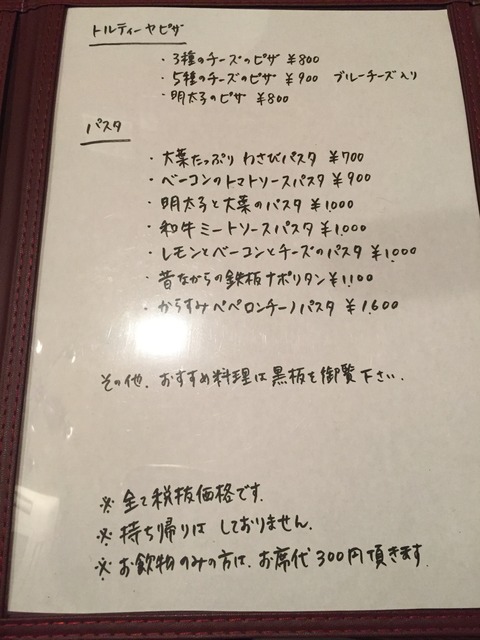 トルティーヤピザ
・3種のチーズのピザ ¥800
・5種のチーズのピザ ¥900 ブルーチーズ入り
・明太子のピザ ¥800
パスタ
・大葉たっぷり わさびパスタ ¥700
・ベーコンのトマトソースパスタ ¥900
・明太子と大葉のパスタ ¥1,000
・和牛ミートソースパスタ ¥1,000
・レモンとベーコンとチーズのパスタ ¥1,000
・昔ながらの鉄板ナポリタン ¥1,100
・からすみペペロンチーノパスタ ¥1,600
その他、おすすめ料理は黒板を御覧下さい.
※全て税抜価格です.
※持ち帰りは しておりません.
※お飲物のみの方は、お席代300円頂きます.